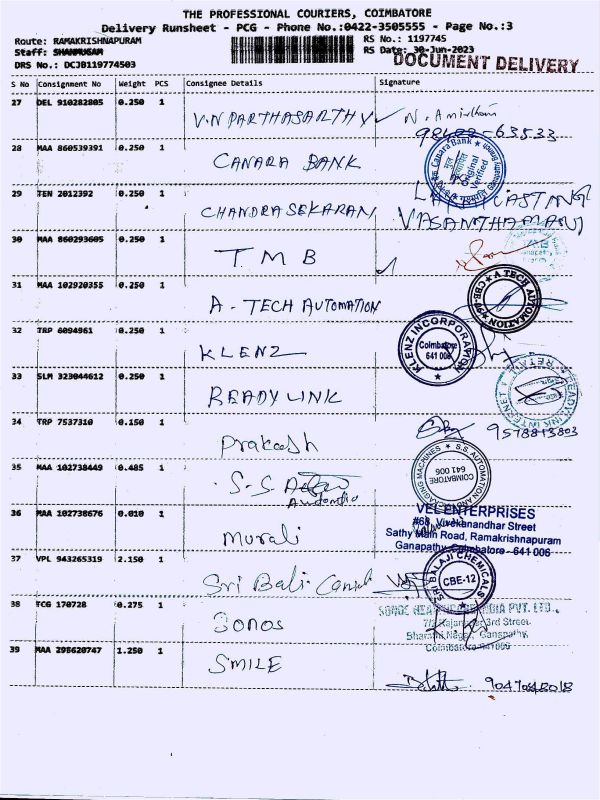 THE PROFESSIONAL COURIERS, COIMBATORE
Delivery Runsheet - PCG - Phone No.:0422-3505555 - Page No.:3
Route: RAMAKRISHNAPURAM
RS No.: 1197745
Staff: SHANMUGAM
RS Date: 30-Jun-2023
DRS No.: DCJB119774503
DOCUMENT DELIVERY
S No Consignment No Weight PCS Consignee Details Signature
27 DEL 910282805 0.250 1 V.N PARTHASARTHY
63533
28 MAA 860539391 0.250 1 CANARA BANK
Canara Bank
Original Verified
29 TEN 2012392 0.250 1 CHANDRASEKARAN
VASANTHAMANI
30 MAA 860293605 0.250 1 TMB
31 MAA 102920355 0.250 1 A-TECH AUTOMATION
A TECH AUTOMATION
32 TRP 6094961 0.250 1 KLENZ
KLENZ INCORPORATION
Coimbatore
641 006
33 SLM 323044612 0.250 1 READYLINK
READYLINK INTERNET
RETAIL
34 TRP 7537310 0.150 1 Prakash
9578813803
35 MAA 102738449 0.485 1 S.S
Automation
S.S. AUTOMATION AND PACKAGING MACHINES
COIMBATORE
641 006
36 MAA 102738676 0.010 1 Murali
VEL ENTERPRISES
#68, Vivekanandhar Street
Sathy Main Road, Ramakrishnapuram
Ganapathy, Coimbatore - 641 006
37 VPL 943265319 2.150 1 Sri Bali
SRI BALAJI CHEMICALS
CBE-12
38 TCG 170728 0.275 1 Sonos
INDIA PVT. LTD.,
3rd Street
Nagar, Ganapathy,
Coimbatore 641006
39 MAA 298620747 1.250 1 SMILE